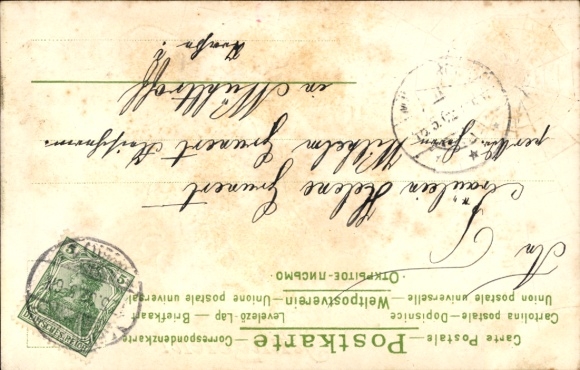 Carte Postale - Postkarte - Correspondenzkarte
Cartolina postale - Dopisnice - Levelező-Lap - Briefkaart
Union postale universelle - Weltpostverein - Unione postale universal
- ОТКРЫТОЕ-ПИСЬМО -
An
Fräulein Helene Grunert
Herrn Wilhelm Grunert
in Mühltroff
5 5
DEUTSCHES REICH